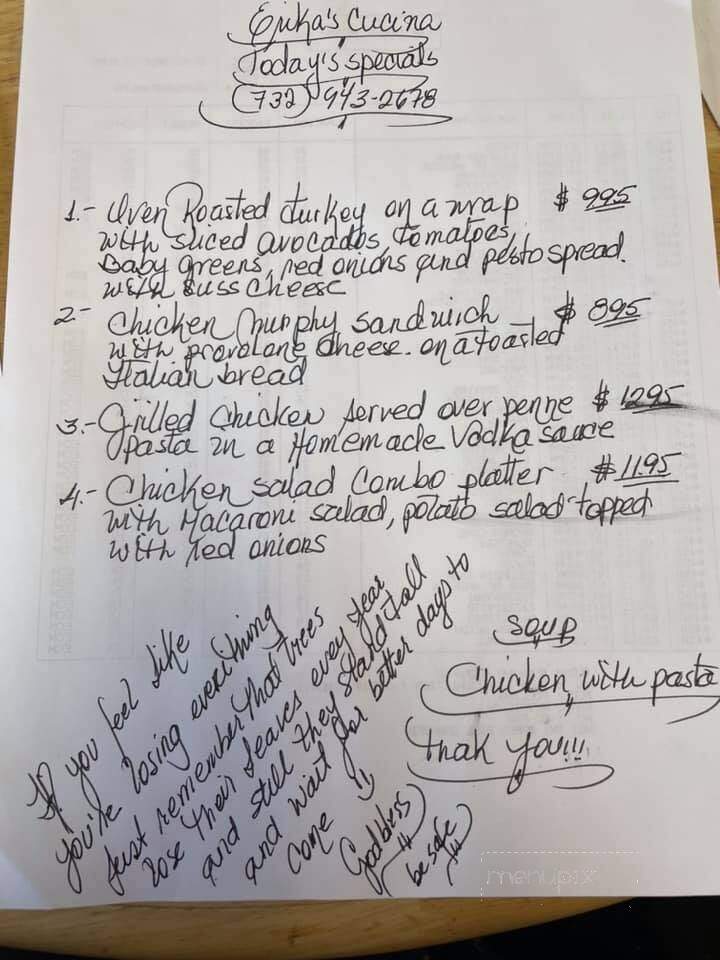 Erika's Cucina
Today's specials
(732) 943-2678
1.- Oven Roasted turkey on a wrap $ 995
with sliced avocados, tomatoes,
Baby greens, red onions and pesto spread.
with suss cheese
2- Chicken Murphy sandwich $ 895
with provolone cheese. on a toasted
Italian bread
3.- Grilled chicken served over penne $ 1295
pasta in a Homemade Vodka sauce
4.- Chicken salad Combo platter $ 11.95
with Macaroni salad, potato salad topped
with red onions
If you feel like
you're losing everything
Just remember that trees
lose their leaves every year
and still they stand tall
and wait for better days to
come
God bless
be safe
soup
Chicken with pasta
thak you!!!
menupix